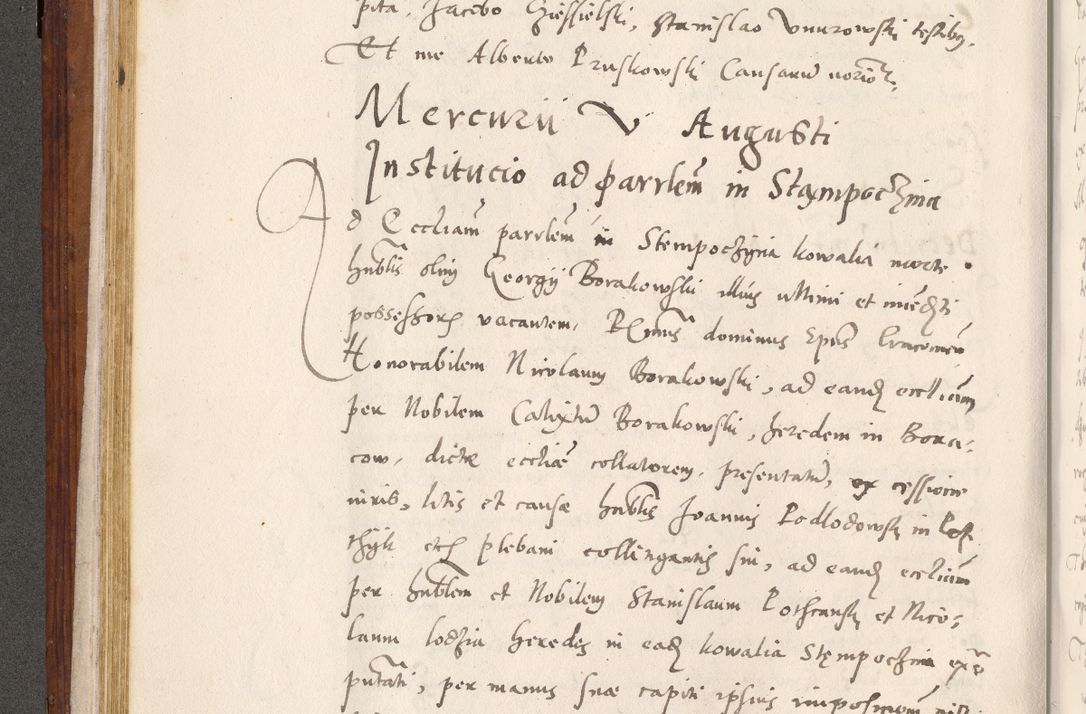 pita, Jacobo Ciessielski, Stanislao Vnurowski testibus,
Et me Alberto Pruskowski Causarum notario
Mercurii V Augusti
Institucio ad parrlem in Stampoczina
Ad Eccliam parrlem in Stempoczynia kowalia morte
hnblis olim Georgii Borakowski illius ultimi et immedti
possessoris vacantem, Rmus dominus Epus Cracovien
Honorabilem Nicolaum Borakowski, ad eand eccliam
per Nobilem Calixtu Borakowski, heredem in Bora-
cow, dictæ eccliæ collatorem, presentatu, ex cessione
iuris, litis et causæ hnblis Joannis Podlodowski in
etc plebani colligantis sui, ad eand eccliam
per hnblem et Nobilem Stanislaum et Nico-
laum lodzia heredes in ead kowalia Stempochina
putati, per manus suæ capiti ipsius